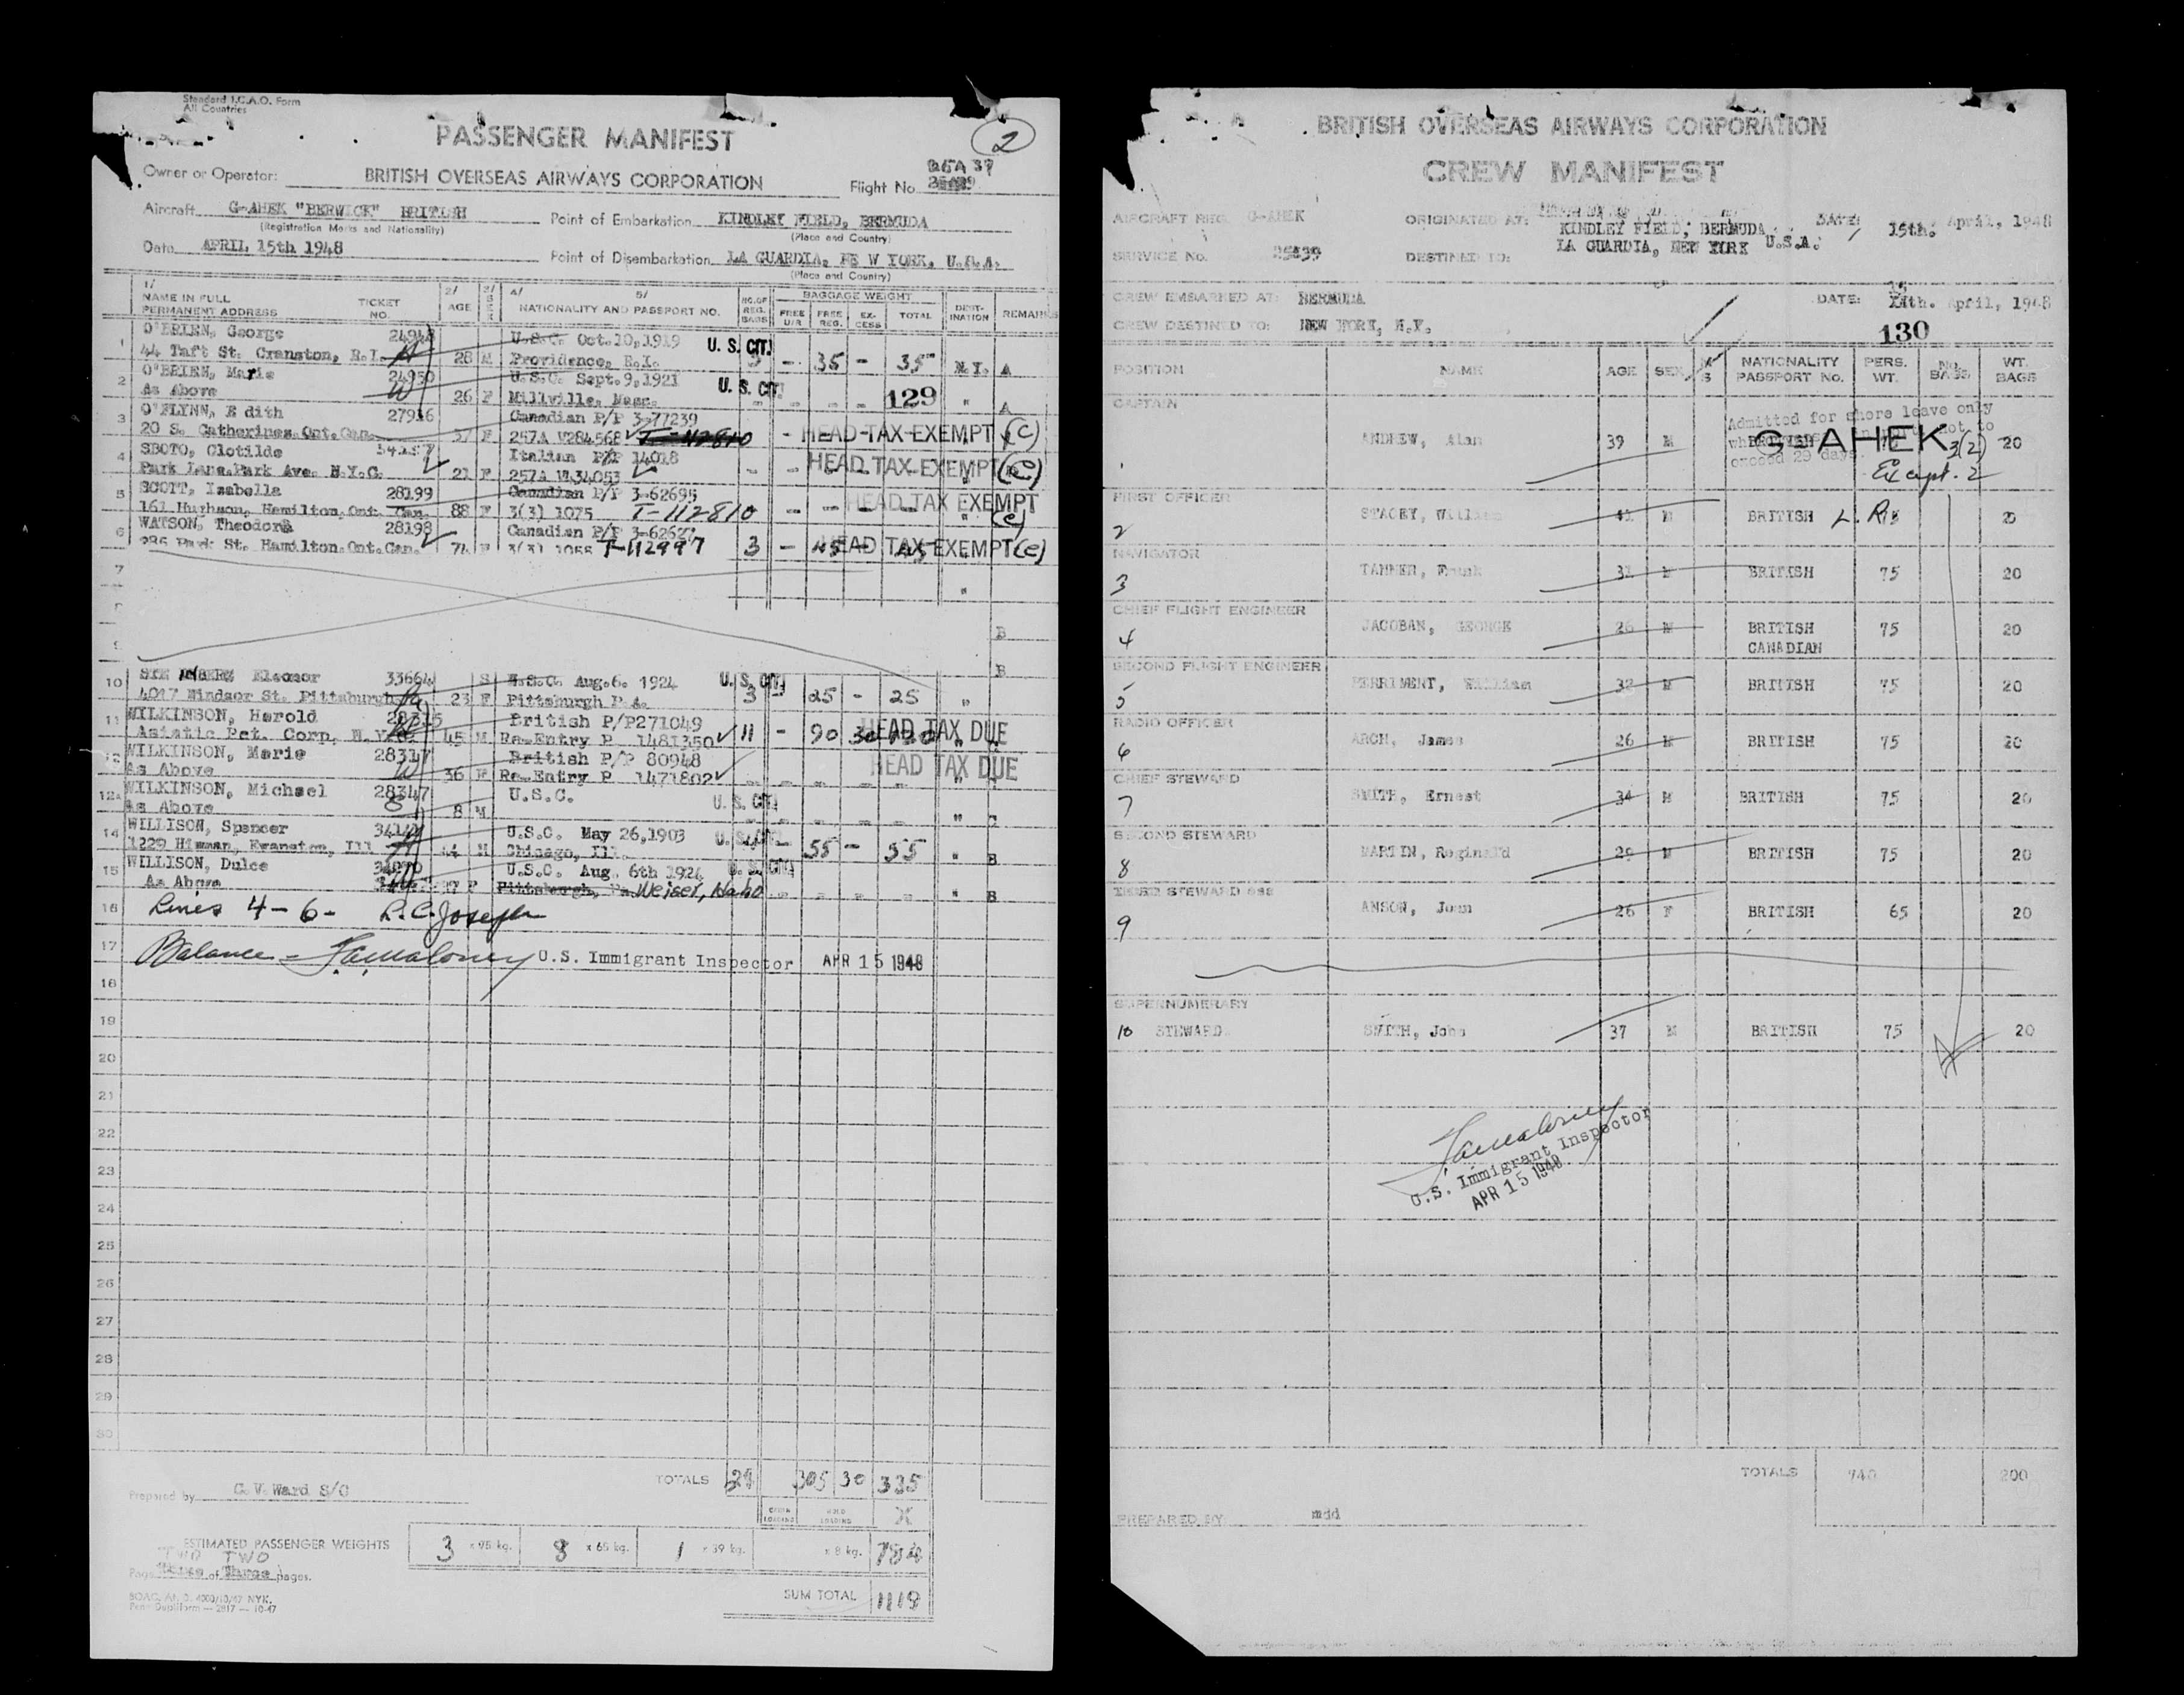 Standard I.C.A.O. Form
All Countries
PASSENGER MANIFEST
2
Owner or Operator: BRITISH OVERSEAS AIRWAYS CORPORATION
Flight No.
Aircraft G-AHEK "BERWICK" BRITISH
(Registration Marks and Nationality)
Point of Embarkation KINDLEY FIELD, BERMUDA
(Place and Country)
Date APRIL 15th 1948
Point of Disembarkation LA GUARDIA, NE W YORK, U.S.A.
(Place and Country)
1/ NAME IN FULL PERMANENT ADDRESS TICKET NO. 2/ AGE 3/ SEX 4/ 5/ NATIONALITY AND PASSPORT NO. NO. OF REG. BAGS BAGGAGE WEIGHT FREE U/R FREE REG. EX-CESS TOTAL DESTI-NATION REMARKS
1 O'BRIEN, George 24948 U.S.C. Oct.10,1919 U. S. CIT.
44 Taft St. Cranston, R.I. 28 M Providence, R.I. - 35 - 35 N.Y. A
2 O'BRIEN, Marie 24950 U.S.C. Sept.9,1921 U. S. CIT.
As Above 26 F Millville, Mass. 129 " A
3 O'FLYNN, E dith 27916 Canadian P/P 3-77239
20 S. Catherines.Ont.Can. 37 F 257A V284568 T-112810 HEAD TAX EXEMPT (C)
4 SBOTO, Clotilde Italian P/P 14018
Park Lane.Park Ave. N.Y.C. 21 F 257A V134053 HEAD TAX EXEMPT (e)
5 SCOTT, Isabella 28199 Canadian P/P 3-62695
161 Hughson, Hamilton.Ont. Can. 88 F 3(3) 1075 T-112810 HEAD TAX EXEMPT (e)
6 WATSON, Theodora 28198 Canadian P/P 3-62627
286 Park St. Hamilton.Ont.Can. 74 F 3(3) 1055 T-112997 3 - 45 - HEAD TAX EXEMPT (e)
7 "
B
B
10 Eleanor 33664 U.S.C. Aug.6. 1924 U. S. CIT.
4017 Windsor St. Pittsburgh 23 F Pittsburgh P.A. 3 - 25 - 25 "
11 WILKINSON, Harold 28315 British P/P271049
Asiatic Pet. Corp, N.Y. 45 M Re-Entry P 1481350 11 - 90 30 HEAD TAX DUE
12 WILKINSON, Marie 28317 British P/P 80948
As Above 36 F Re-Entry P 1471802 HEAD TAX DUE
12A WILKINSON, Michael 28347 U.S.C. U. S. CIT.
As Above 8 M " C
14 WILLISON, Spencer U.S.C. May 26,1903 U. S. CIT.
1229 Hinman, Evanston, Ill 44 M Chicago, Ill. 55 - 55 " B
15 WILLISON, Dulce U.S.C. Aug. 6th 1924 U. S. CIT.
As Above F Pittsburgh, Pa. Weiser, Idaho " B
16 Lines 4-6- R.C. Joseph
17 Balance - U.S. Immigrant Inspector APR 15 1948
18
19
20
21
22
23
24
25
26
27
28
29
30
TOTALS 305 30 335
Prepared by C.V.Ward S/O
ESTIMATED PASSENGER WEIGHTS 3 x 95 kg. 8 x 65 kg. 1 x 39 kg. x 8 kg. 784
TWO TWO
Page Three of Three pages.
SUM TOTAL 1119
BRITISH OVERSEAS AIRWAYS CORPORATION
CREW MANIFEST
AIRCRAFT REG. G-AHEK ORIGINATED AT: KINDLEY FIELD, BERMUDA DATE: 15th. April, 1948
SERVICE No. DESTINED TO: LA GUARDIA, NEW YORK U.S.A.
CREW EMBARKED AT: BERMUDA DATE: 15 14th. April, 1948
CREW DESTINED TO: NEW YORK, N.Y. 130
POSITION NAME AGE SEX M S NATIONALITY PASSPORT NO. PERS. WT. NO. BAGS WT. BAGS
CAPTAIN
Admitted for shore leave only
ANDREW, Alan 39 M BRITISH 20
G-AHEK 3(2)
exceed 29 days.
Except. 2
FIRST OFFICER
2 STACEY, William 41 M BRITISH L.R.
NAVIGATOR
3 TANNER, Frank M BRITISH 75 20
CHIEF FLIGHT ENGINEER
4 JACOBAN, GEORGE 26 M BRITISH CANADIAN 75 20
SECOND FLIGHT ENGINEER
5 MERRIMENT, William M BRITISH 75 20
RADIO OFFICER
6 ARCH, James 26 M BRITISH 75 20
CHIEF STEWARD
7 SMITH, Ernest 34 M BRITISH 75 20
SECOND STEWARD
8 MARTIN, Reginald 29 M BRITISH 75 20
THIRD STEWARD ess
9 ANSON, Joan 26 F BRITISH 65 20
SUPERNUMERARY
10 STEWARD SMITH, John 37 M BRITISH 75 20
U.S. Immigrant Inspector
APR 15 1948
TOTALS 740 200
PREPARED BY mdd